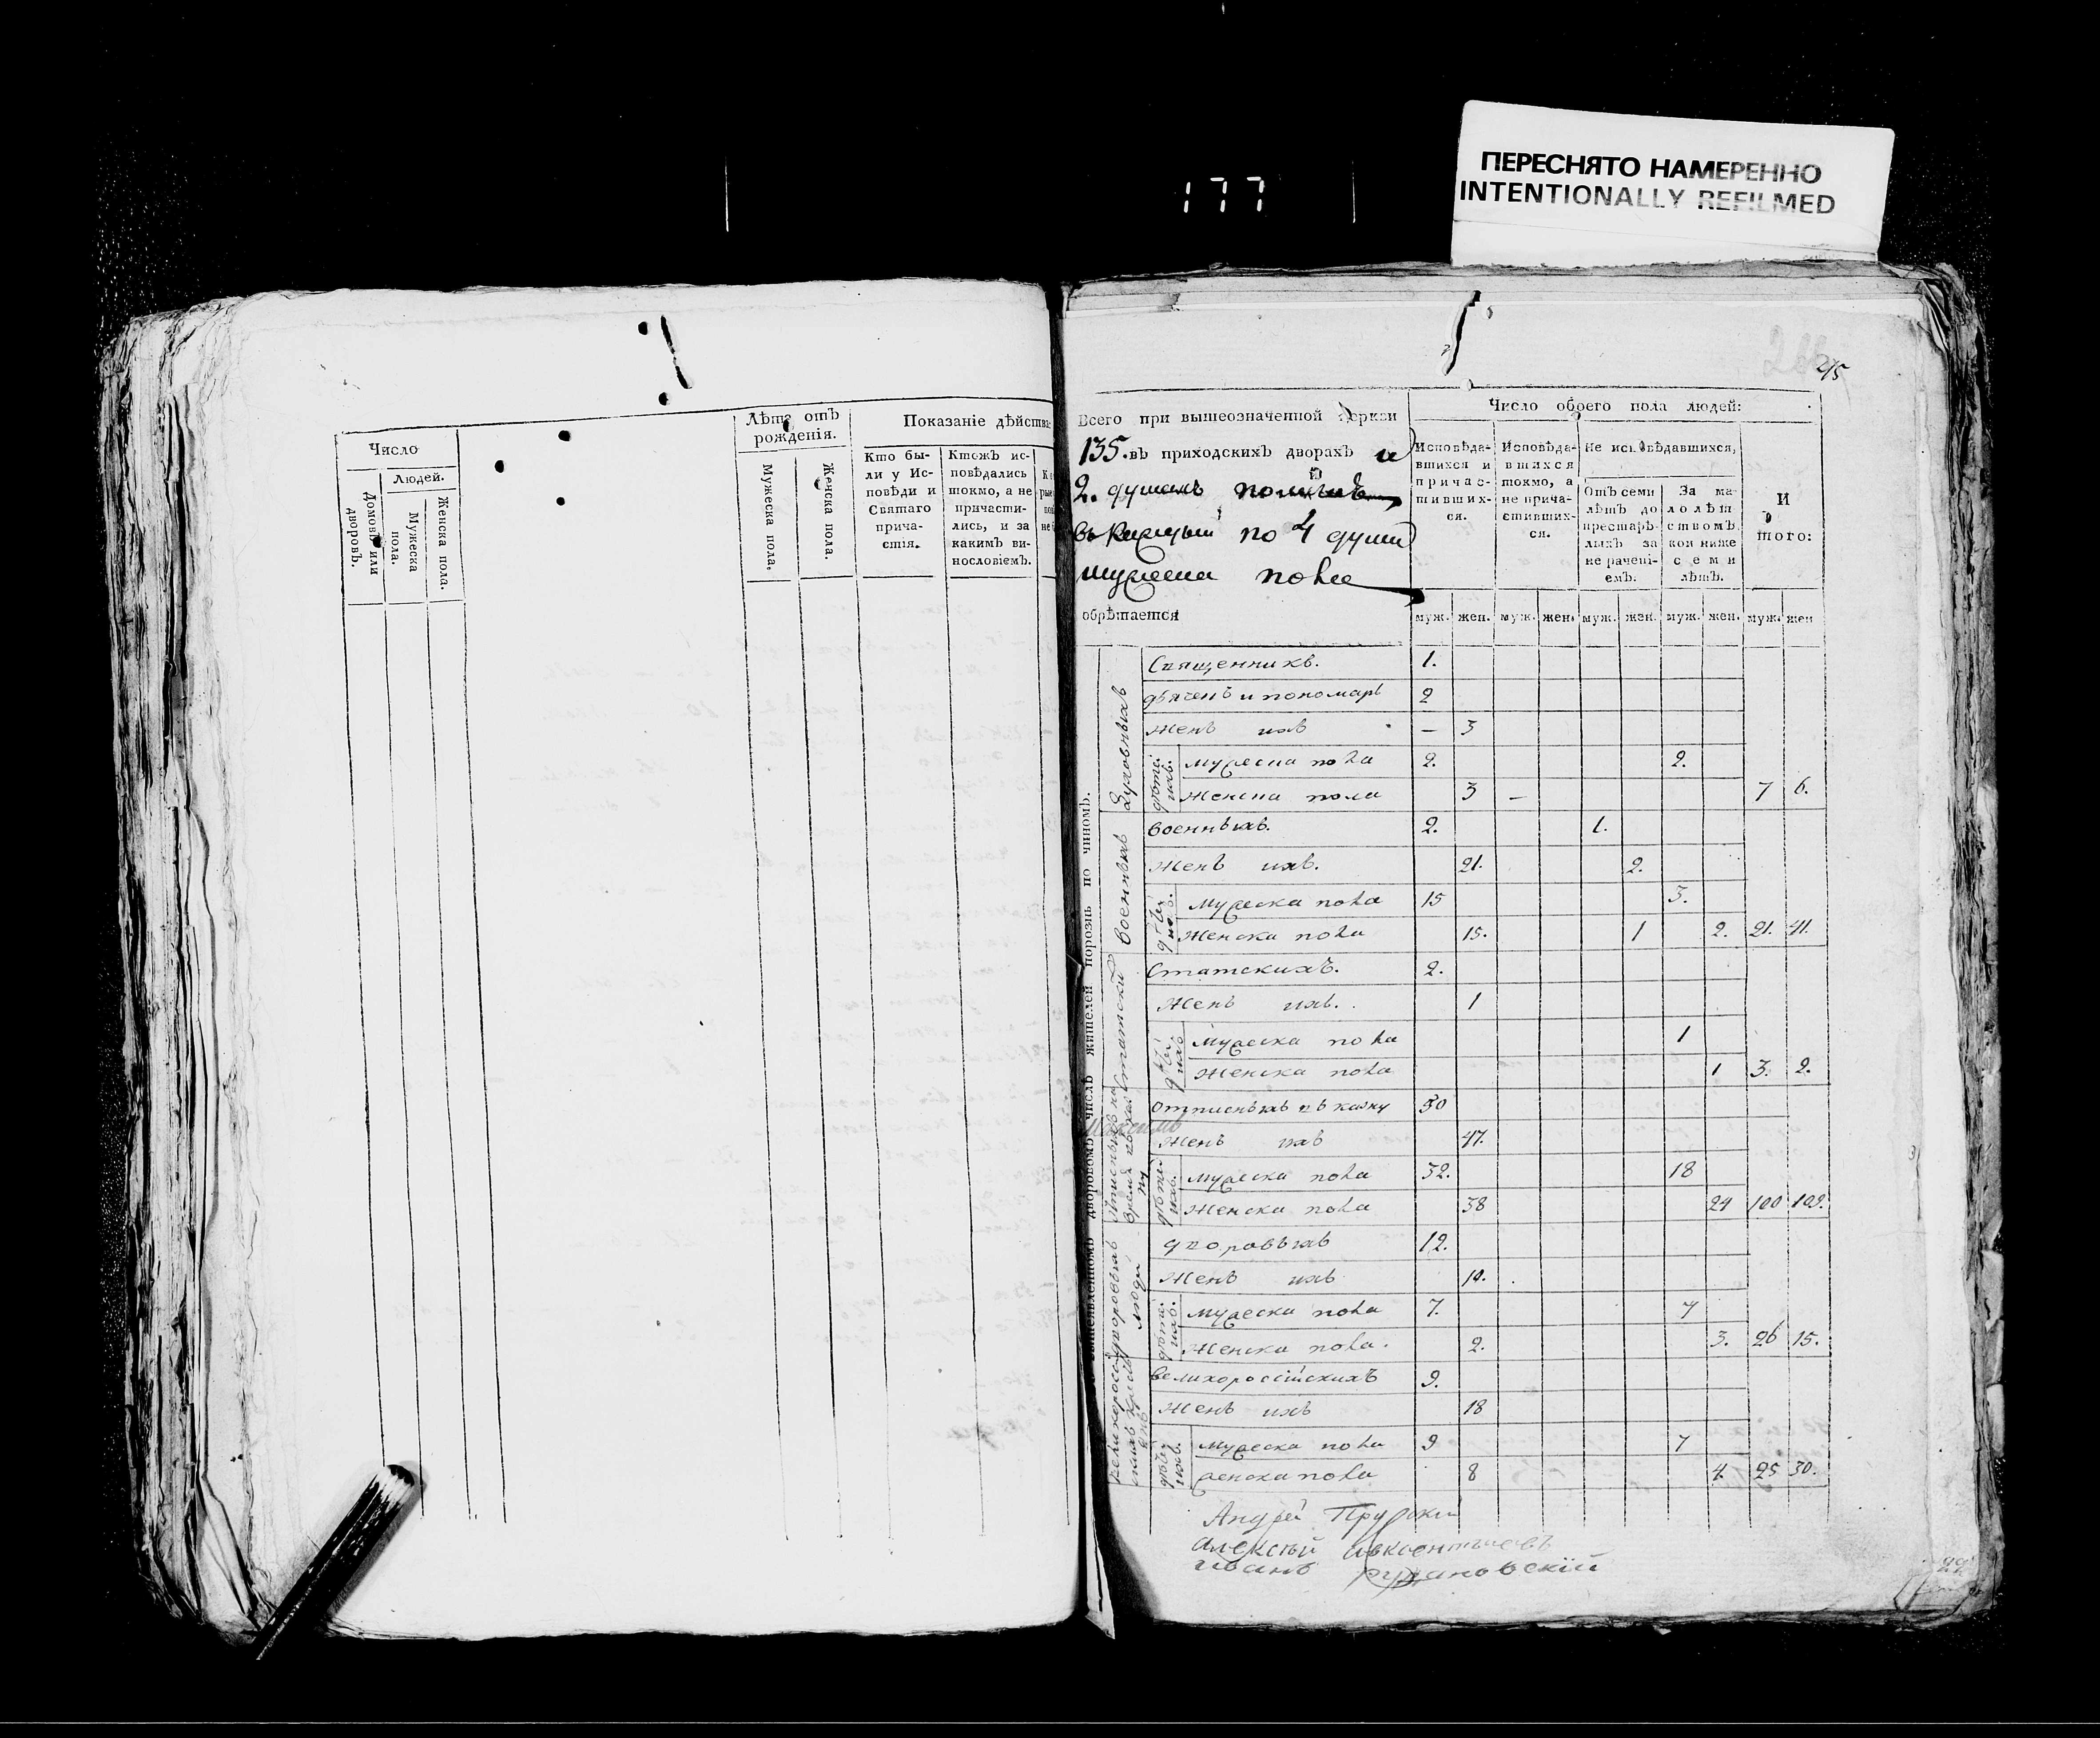 ПЕРЕСНЯТО НАМЕРЕННО
INTENTIONALLY REFILMED
177
Число
Домовъ или дворовъ.
Людей.
Мужеска пола.
Женска пола.
Лѣта отъ рожденія.
Мужеска пола.
Женска пола.
Показаніе дѣйства
Кто бы-
ли у Ис-
повѣди и
Святаго
прича-
стія.
Ктожъ ис-
повѣдались
токмо, а не
причасти-
лись, и за
какимъ ви-
нословіемъ.
215
Всего при вышеозначенной церкви
135. въ приходскихъ дворахъ и
2. душамъ
по 4 души
мужеска пола
обрѣтается
Число обоего пола людей:
Исповѣда-
вшихся и
причас-
тивших-
ся.
Исповѣда-
вшихся
токмо, а
не прича-
стивших-
ся.
Не исповѣдавшихся,
Отъ семи
лѣтъ до
престарѣ-
лыхъ за
не рачені-
емъ.
За ма-
лолѣт-
ствомъ
кои ниже
семи
лѣтъ.
И
того:
муж. жен. муж. жен. муж. жен. муж. жен. муж. жен
вышеявленномъ дворовомъ числѣ жителей порознь по чиномъ.
Духовныхъ
Священникъ. 1.
дьячекъ и пономарь 2
Женъ ихъ — 3
дѣтей ихъ.
мужеска пола 2. 2.
Женска пола 3 — 7 6.
Военныхъ
Военныхъ. 2. 1.
Женъ ихъ. 21. 2.
дѣтей ихъ.
Мужеска пола 15 3.
Женска пола 15. 1 2. 21. 41.
Статскихъ
Статскихъ. 2.
Женъ ихъ. 1
дѣтей ихъ
Мужеска пола 1
Женска пола 1 3. 2.
отписныхъ въ казну 50
Женъ ихъ 47.
дѣтей ихъ.
Мужеска пола 32. 18
Женска пола 38 24 100 109.
дворовыхъ люди
дворовыхъ 12.
Женъ ихъ 10.
дѣтей ихъ.
Мужеска пола 7. 7
Женска пола. 2. 3. 26 15.
великороссійскихъ 9.
Женъ ихъ 18
дѣтей ихъ.
Мужеска пола 9 7
женска пола 8 4. 25 30.
Андрей
Алексѣй
Иванъ